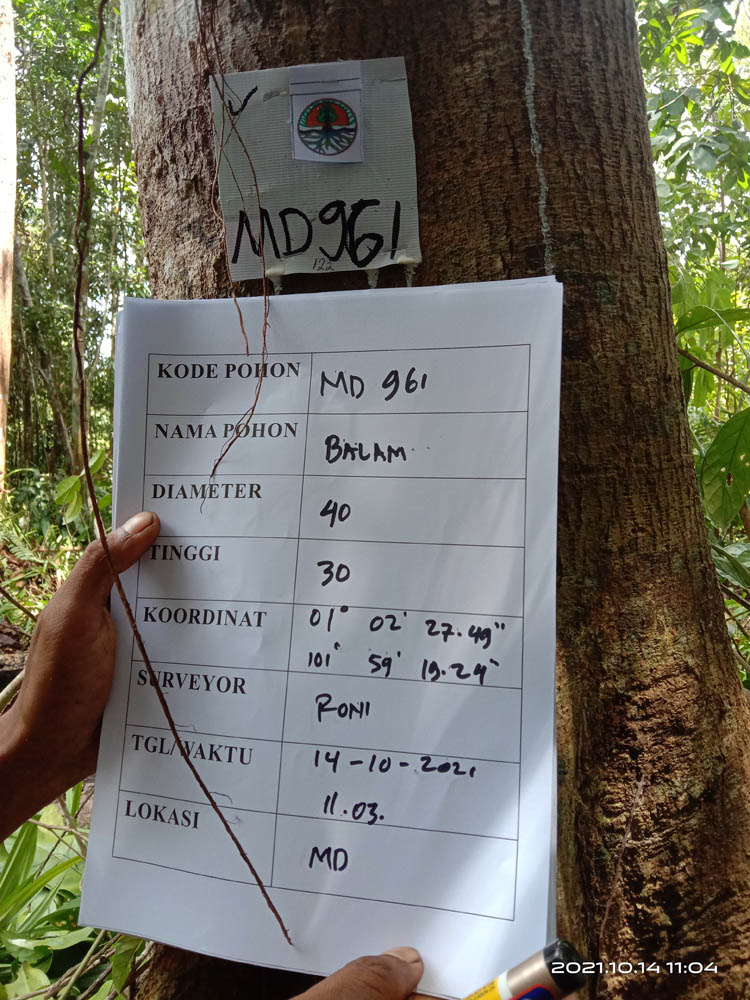 MD961
122
KODE POHON MD 961
NAMA POHON BALAM
DIAMETER 40
TINGGI 30
KOORDINAT 01° 02' 27.49"
101° 59' 19.24"
SURVEYOR RONI
TGL/WAKTU 14-10-2021
11.03.
LOKASI MD
2021.10.14 11:04